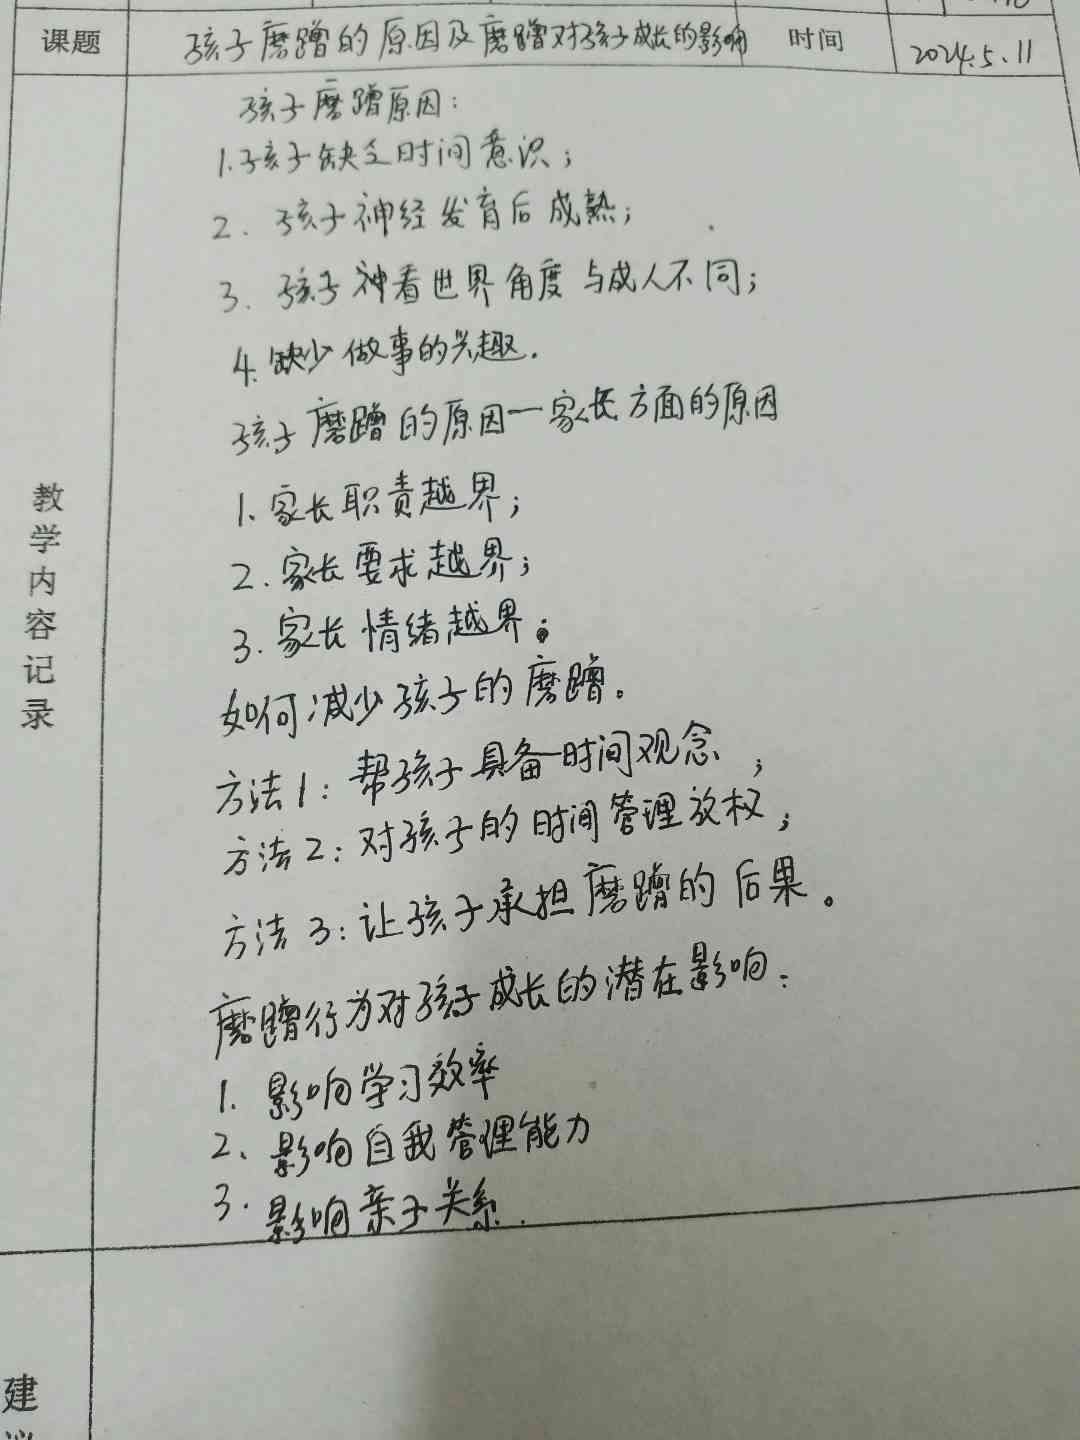 课题 孩子磨蹭的原因及磨蹭对孩子成长的影响 时间 2024.5.11
孩子磨蹭原因:
1.孩子缺乏时间意识;
2. 孩子神经发育后成熟;
3. 孩子神看世界角度与成人不同;
4.缺少做事的兴趣.
孩子磨蹭的原因一家长方面的原因
1.家长职责越界;
2.家长要求越界;
3.家长情绪越界.
如何减少孩子的磨蹭。
方法1:帮孩子具备时间观念;
方法2:对孩子的时间管理放权;
方法3:让孩子承担磨蹭的后果。
磨蹭行为对孩子成长的潜在影响:
1. 影响学习效率
2、影响自我管理能力
3. 影响亲子关系.
教学内容记录
建